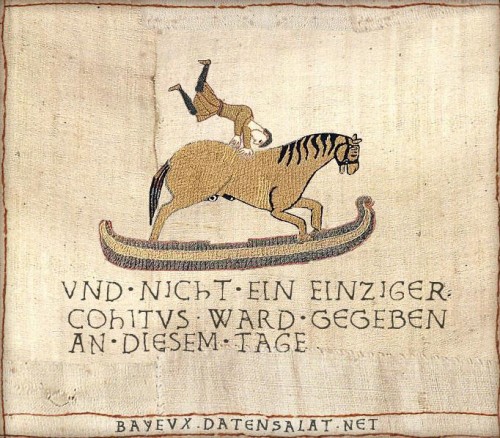 VND·NICHT·EIN EINZIGER·
COHITVS·WARD·GEGEBEN
AN·DIESEM·TAGE
BAYEVX·DATENSALAT·NET